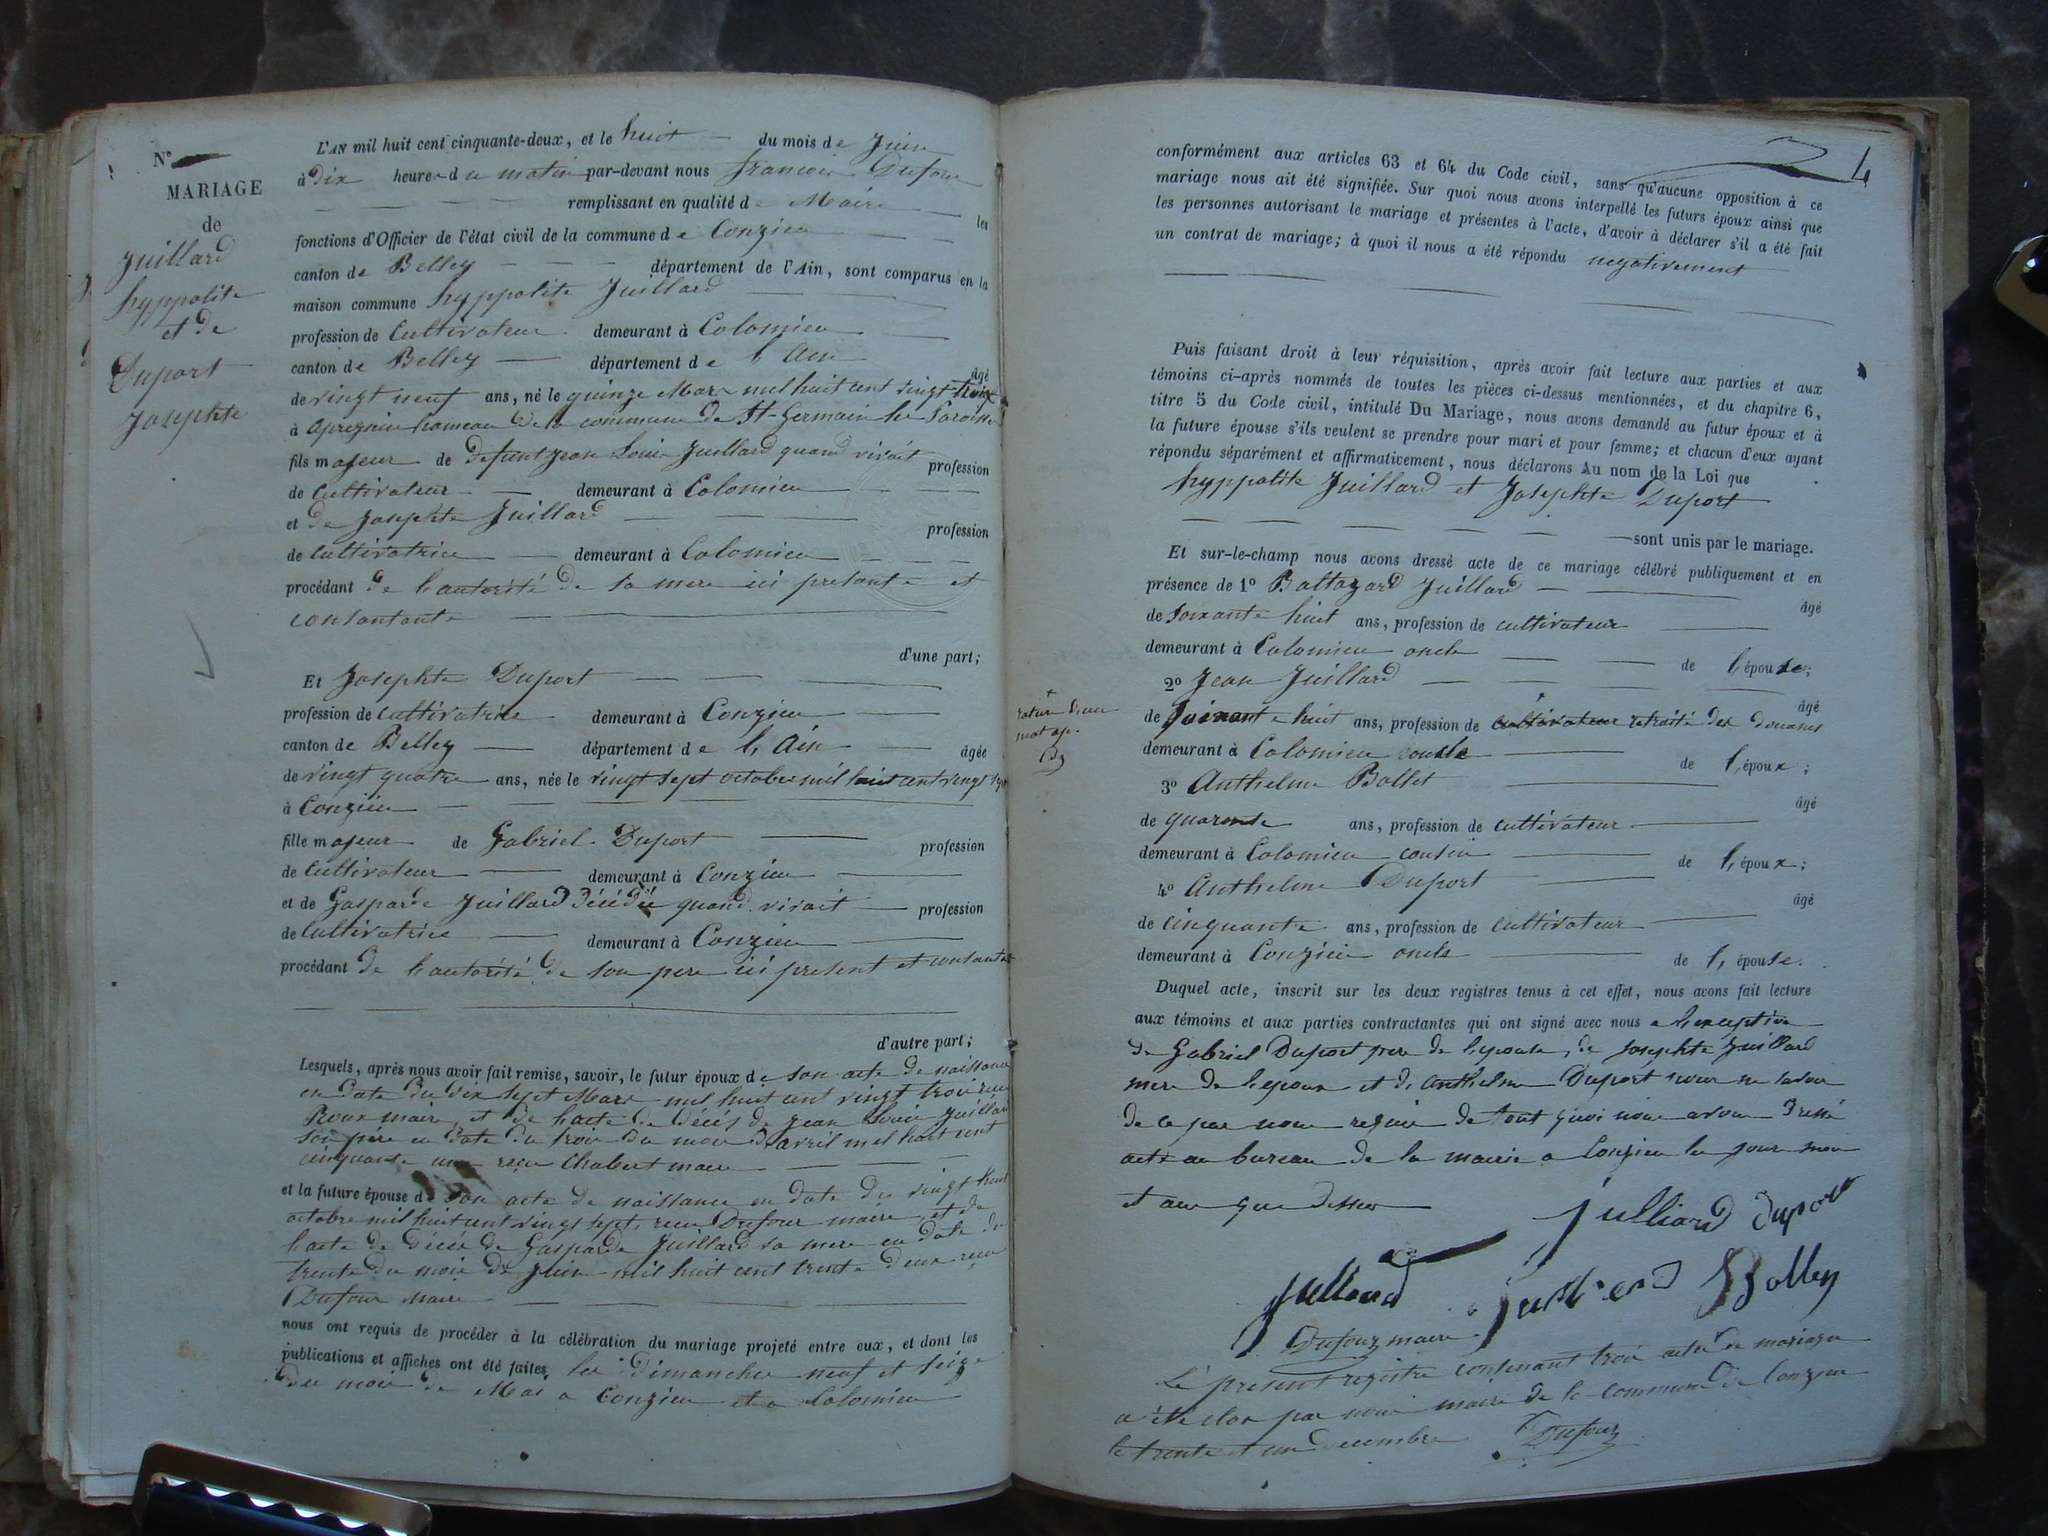 N°
MARIAGE
de
Juillard
hyppolite
et de
Duport
Josephte
L'AN mil huit cent cinquante-deux, et le huit du mois de Juin
à dix heures du matin par-devant nous francois Dufour
remplissant en qualité de Maire les
fonctions d'Officier de l'état civil de la commune de Conzieu
canton de Belley département de l'Ain, sont comparus en la
maison commune hyppolite Juillard
profession de Cultivateur demeurant à Colomieu
canton de Belley département de l'Ain
âgé
de vingt neuf ans, né le quinze Mars mil huit cent vingt trois
à hameau de la commune de St-Germain les Paroisses
fils majeur de defunt Jean Louis Juillard quand vivait profession
de Cultivateur demeurant à Colomieu
et de Josephte Juillard profession
de Cultivatrice demeurant à Colomieu
procédant de l'autorité de sa mere ici presante et
consantante
d'une part;
Et Josephte Duport
profession de cultivatrice demeurant à Conzieu
canton de Belley département de l'Ain âgée
de vingt quatre ans, née le vingt sept octobre mil huit cent vingt sept
à Conzieu
fille majeur de Gabriel Duport profession
de Cultivateur demeurant à Conzieu
et de Gasparde Juillard décédée quand vivait profession
de Cultivatrice demeurant à Conzieu
procédant de l'autorité de son pere ici present et consantant
d'autre part;
Lesquels, après nous avoir fait remise, savoir, le futur époux de son acte de naissance
en date du dix sept Mars mil huit cent vingt trois recu
Roux maire, et de l'acte de décés de Jean Louis Juillard
son père en date du trois du mois d'avril mil huit cent
cinquante un recu Chabert maire
et la future épouse de son acte de naissance en date du vingt huit
octobre mil huit cent vingt sept, recu Dufour maire, et de
l'acte de décés de Gasparde Juillard sa mere en date du
trente du mois de Juin mil huit cent trente deux recu
Dufour maire
nous ont requis de procéder à la célébration du mariage projeté entre eux, et dont les
publications et affiches ont été faites, les dimanches neuf et seize
du mois de Mai a Conzieu et a Colomieu
4
conformément aux articles 63 et 64 du Code civil, sans qu'aucune opposition à ce
mariage nous ait été signifiée. Sur quoi nous avons interpellé les futurs époux ainsi que
les personnes autorisant le mariage et présentes à l'acte, d'avoir à déclarer s'il a été fait
un contrat de mariage; à quoi il nous a été répondu negativement
Puis faisant droit à leur réquisition, après avoir fait lecture aux parties et aux
témoins ci-après nommés de toutes les pièces ci-dessus mentionnées, et du chapitre 6,
titre 5 du Code civil, intitulé Du Mariage, nous avons demandé au futur époux et à
la future épouse s'ils veulent se prendre pour mari et pour femme; et chacun d'eux ayant
répondu séparément et affirmativement, nous déclarons AU nom de la Loi que
hyppolite Juillard et Josephte Duport
sont unis par le mariage.
Et sur-le-champ nous avons dressé acte de ce mariage célébré publiquement et en
présence de 1° Baltazard Juillard
âgé
de soixante huit ans, profession de cultivateur
demeurant à Colomieu oncle de l'épouse;
2° Jean Juillard
âgé
de soixante huit ans, profession de cultivateur retraité des douanes
rature d'un
mot ap.
demeurant à Colomieu oncle de l'époux;
3° Anthelme Bollet
âgé
de quarente ans, profession de cultivateur
demeurant à Colomieu cousin de l'époux;
4° Anthelme Duport
âgé
de cinquante ans, profession de cultivateur
demeurant à Conzieu oncle de l'épouse.
Duquel acte, inscrit sur les deux registres tenus à cet effet, nous avons fait lecture
aux témoins et aux parties contractantes qui ont signé avec nous a l'exception
de Gabriel Duport pere de l'epouse, de Josephte Juillard
mere de l'epoux et de Anthelme Duport pour ne savoir
de ce par nous requis de tout quoi nous avons dressé
acte au bureau de la mairie a Conzieu les jour mois
et an que dessus
Julliard Duport
Julliard Julliard Bolley
Dufour maire
Le present registre contenant trois actes de mariage
a été clos par nous maire de la commune de Conzieu
le trente et un decembre Dufour